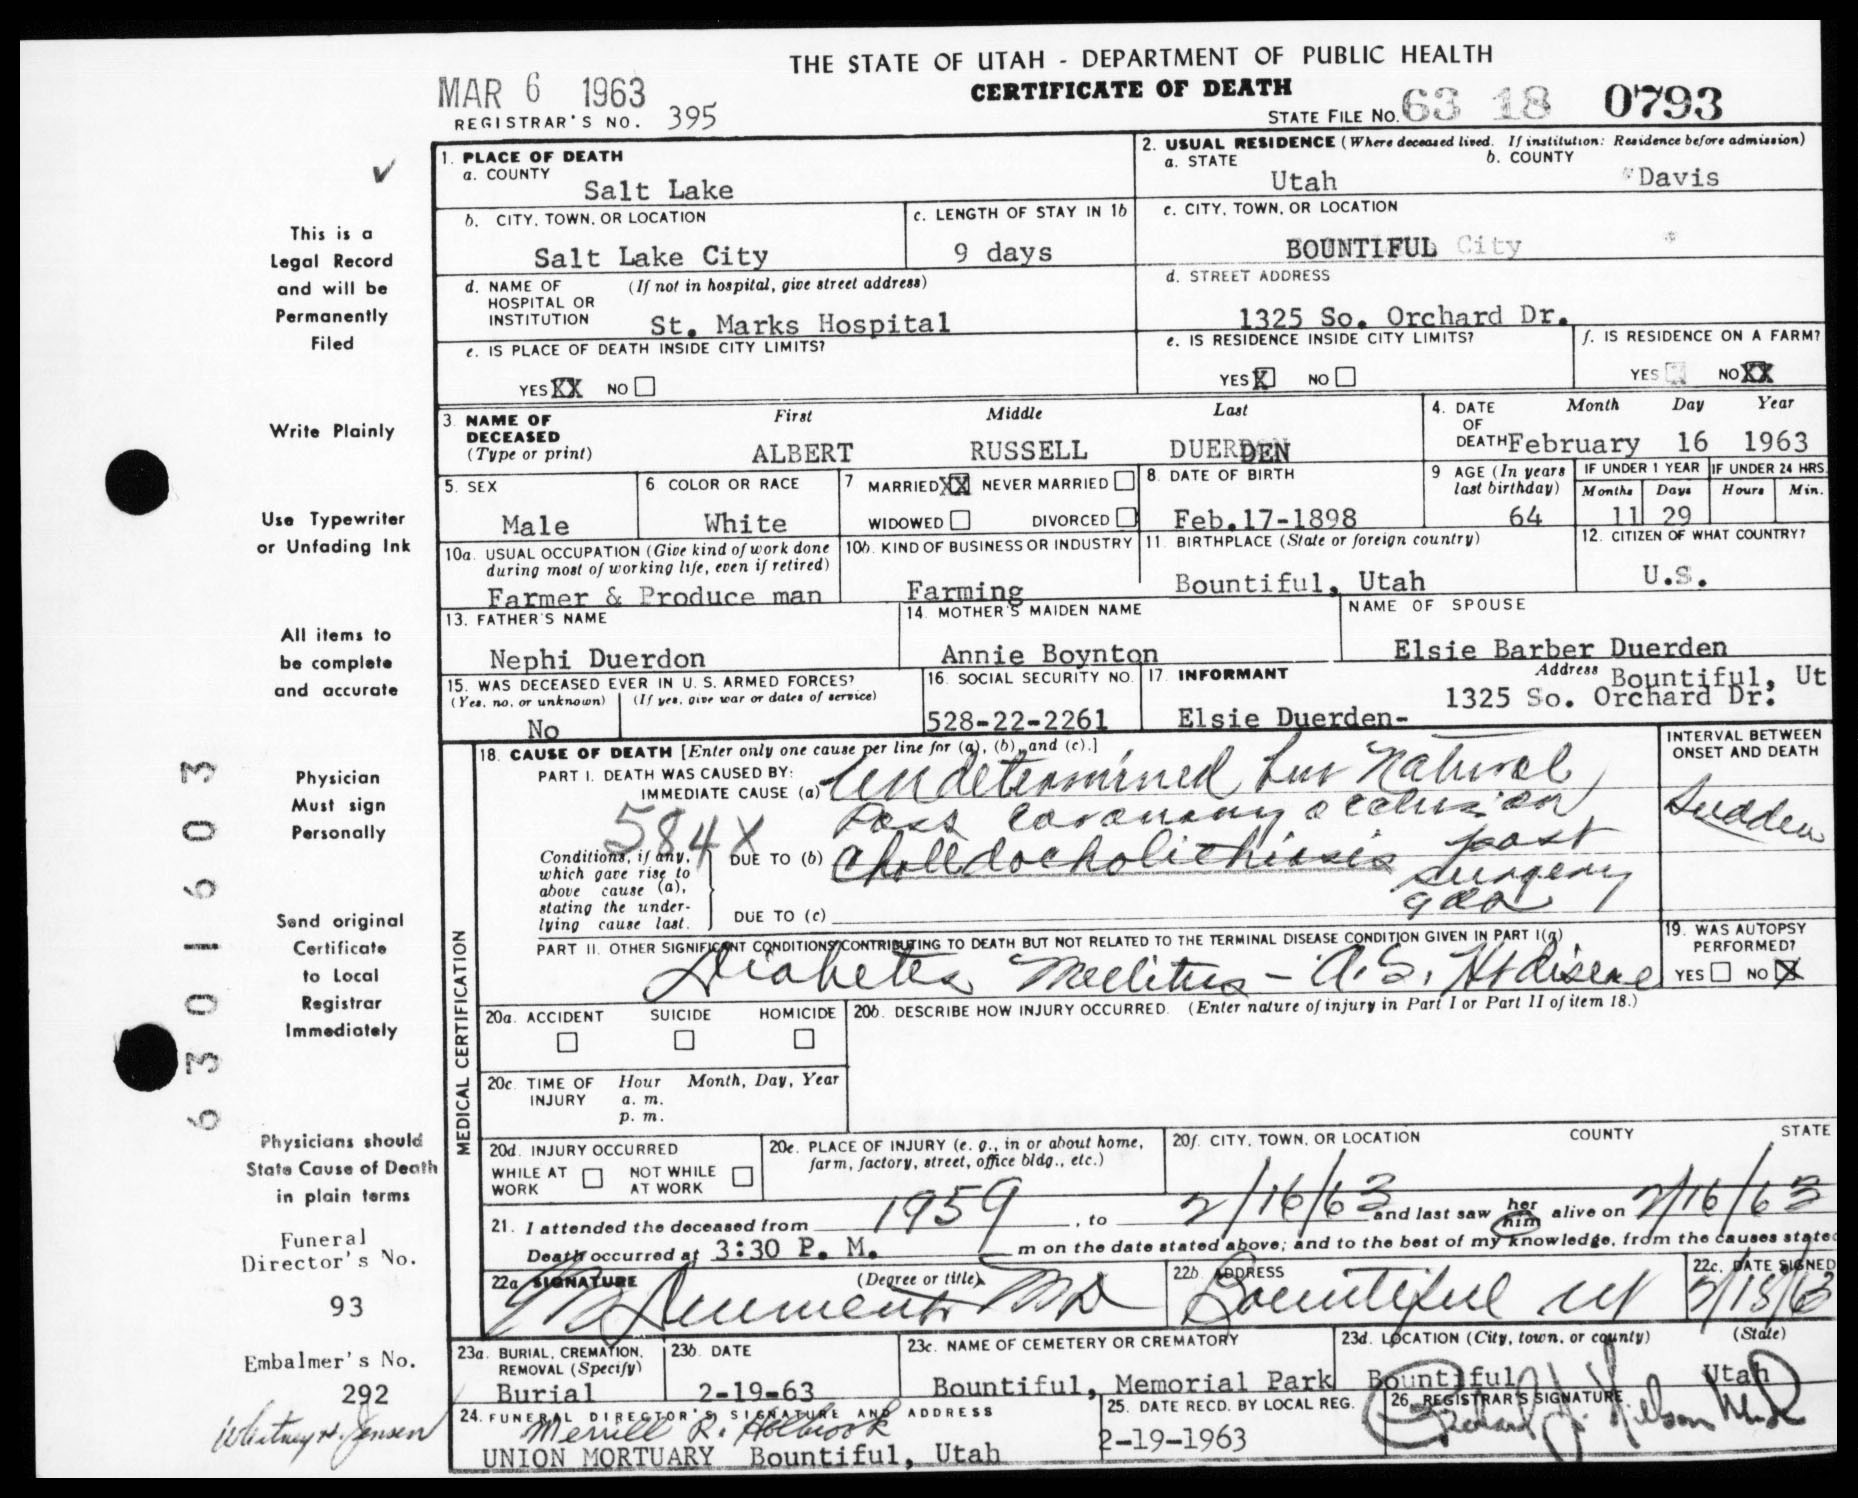 THE STATE OF UTAH - DEPARTMENT OF PUBLIC HEALTH
CERTIFICATE OF DEATH
MAR 6 1963
REGISTRAR'S NO. 395
STATE FILE NO. 63 18 0793
1. PLACE OF DEATH
a. COUNTY
Salt Lake
2. USUAL RESIDENCE (Where deceased lived. If institution: Residence before admission)
a. STATE b. COUNTY
Utah Davis
b. CITY, TOWN, OR LOCATION
Salt Lake City
c. LENGTH OF STAY IN 1b
9 days
c. CITY, TOWN, OR LOCATION
BOUNTIFUL City
d. NAME OF HOSPITAL OR INSTITUTION (If not in hospital, give street address)
St. Marks Hospital
d. STREET ADDRESS
1325 So. Orchard Dr.
e. IS PLACE OF DEATH INSIDE CITY LIMITS?
YES XX NO
e. IS RESIDENCE INSIDE CITY LIMITS?
YES X NO
f. IS RESIDENCE ON A FARM?
YES NO XX
3. NAME OF DECEASED (Type or print)
First Middle Last
ALBERT RUSSELL DUERDEN
4. DATE OF DEATH
Month Day Year
February 16 1963
5. SEX
Male
6 COLOR OR RACE
White
7 MARRIED XX NEVER MARRIED
WIDOWED DIVORCED
8. DATE OF BIRTH
Feb.17-1898
9 AGE (In years last birthday)
64
IF UNDER 1 YEAR IF UNDER 24 HRS.
Months Days Hours Min.
11 29
10a. USUAL OCCUPATION (Give kind of work done during most of working life, even if retired)
Farmer & Produce man
10b. KIND OF BUSINESS OR INDUSTRY
Farming
11. BIRTHPLACE (State or foreign country)
Bountiful, Utah
12. CITIZEN OF WHAT COUNTRY?
U.S.
13. FATHER'S NAME
Nephi Duerdon
14. MOTHER'S MAIDEN NAME
Annie Boynton
NAME OF SPOUSE
Elsie Barber Duerden
15. WAS DECEASED EVER IN U. S. ARMED FORCES?
(Yes, no, or unknown) (If yes, give war or dates of service)
No
16. SOCIAL SECURITY NO.
528-22-2261
17. INFORMANT Address
Elsie Duerden- Bountiful, Ut
1325 So. Orchard Dr.
MEDICAL CERTIFICATION
18. CAUSE OF DEATH [Enter only one cause per line for (a), (b), and (c).]
INTERVAL BETWEEN ONSET AND DEATH
PART I. DEATH WAS CAUSED BY:
IMMEDIATE CAUSE (a) Undetermined but Natural
Poss coronary occlusion
Sudden
584X
Conditions, if any, which gave rise to above cause (a), stating the underlying cause last.
DUE TO (b) Cholédocholithiasis post
surgery
9 da
DUE TO (c)
PART II. OTHER SIGNIFICANT CONDITIONS CONTRIBUTING TO DEATH BUT NOT RELATED TO THE TERMINAL DISEASE CONDITION GIVEN IN PART I(a)
Diabetes Mellitus - A.S. Ht disease
19. WAS AUTOPSY PERFORMED?
YES NO X
20a. ACCIDENT SUICIDE HOMICIDE
20b. DESCRIBE HOW INJURY OCCURRED. (Enter nature of injury in Part I or Part II of item 18.)
20c. TIME OF INJURY Hour Month, Day, Year
a. m.
p. m.
20d. INJURY OCCURRED
WHILE AT WORK NOT WHILE AT WORK
20e. PLACE OF INJURY (e. g., in or about home, farm, factory, street, office bldg., etc.)
20f. CITY, TOWN, OR LOCATION COUNTY STATE
21. I attended the deceased from 1959, to 2/16/63 and last saw her him alive on 2/16/63
Death occurred at 3:30 P. M. m on the date stated above; and to the best of my knowledge, from the causes stated
22a. SIGNATURE (Degree or title)
MD
22b. ADDRESS
Bountiful Ut
22c. DATE SIGNED
2/18/63
23a. BURIAL, CREMATION, REMOVAL (Specify)
Burial
23b. DATE
2-19-63
23c. NAME OF CEMETERY OR CREMATORY
Bountiful, Memorial Park
23d. LOCATION (City, town, or county) (State)
Bountiful Utah
24. FUNERAL DIRECTOR'S SIGNATURE AND ADDRESS
Merrill R. Holbrook
UNION MORTUARY Bountiful, Utah
25. DATE RECD. BY LOCAL REG.
2-19-1963
26. REGISTRAR'S SIGNATURE
This is a
Legal Record
and will be
Permanently
Filed
Write Plainly
Use Typewriter
or Unfading Ink
All items to
be complete
and accurate
Physician
Must sign
Personally
Send original
Certificate
to Local
Registrar
Immediately
Physicians should
State Cause of Death
in plain terms
Funeral
Director's No.
93
Embalmer's No.
292
Whitney H. Jensen
6301603